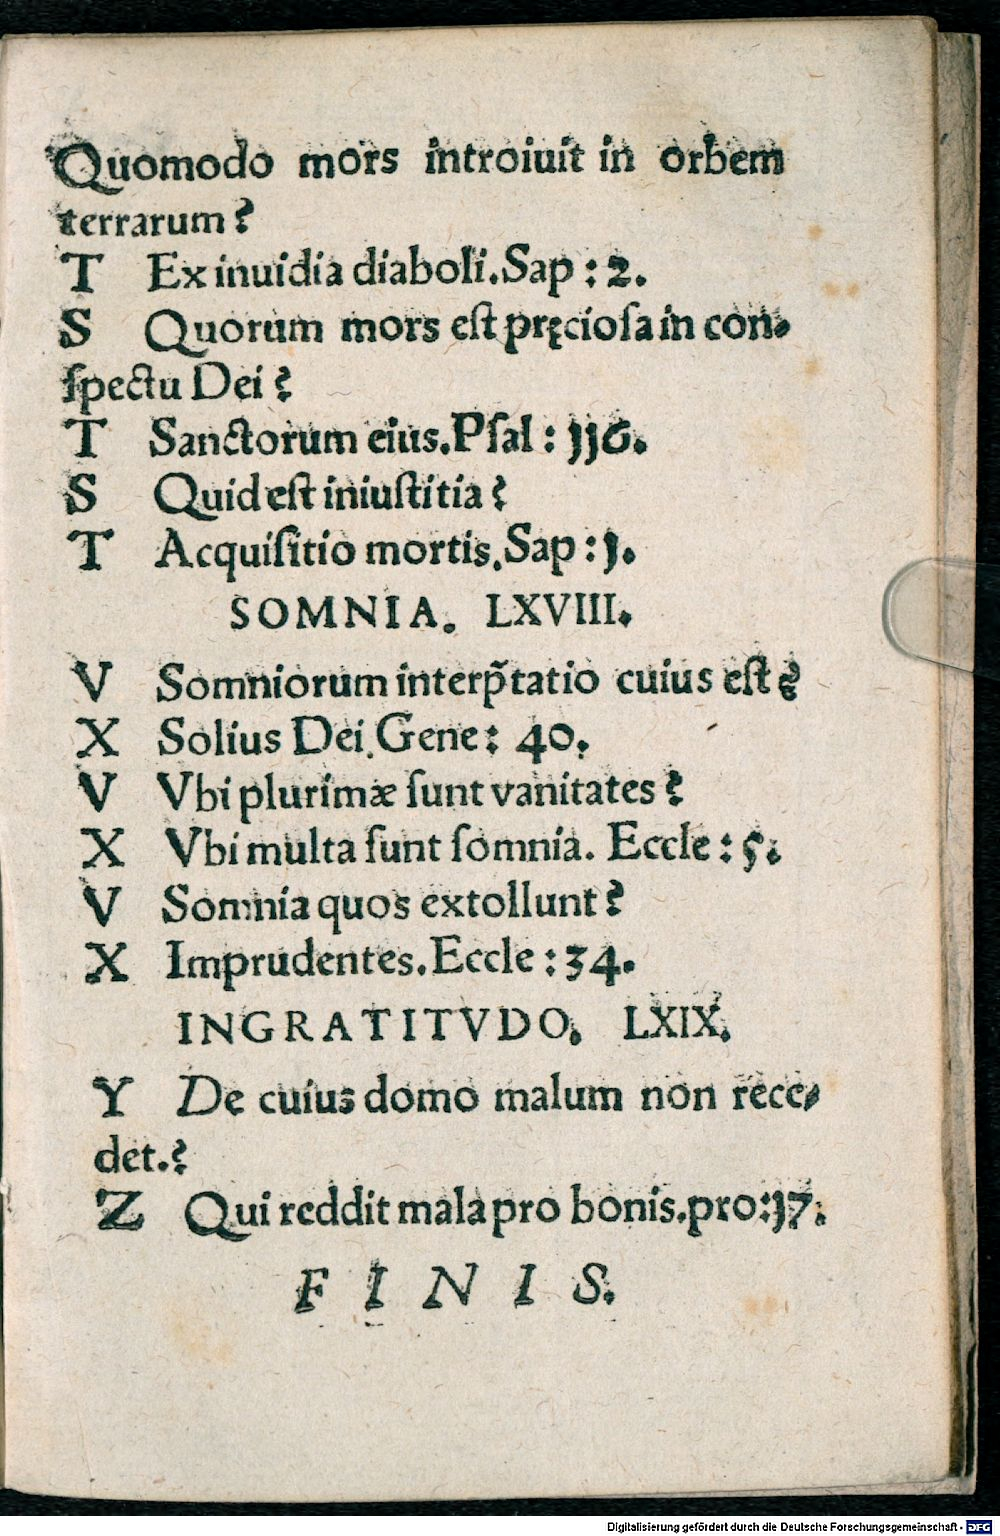 Quomodo mors introiuit in orbem
terrarum?
T Ex inuidia diaboli. Sap : 2.
S Quorum mors est pręciosa in con-
spectu Dei?
T Sanctorum eius. Psal : 116.
S Quid est iniustitia?
T Acquisitio mortis. Sap : 1.
SOMNIA. LXVIII.
V Somniorum interp̃tatio cuius est?
X Solius Dei. Gene : 40.
V Vbi plurimæ sunt vanitates?
X Vbi multa sunt somnia. Eccle : 5.
V Somnia quos extollunt?
X Imprudentes. Eccle : 34.
INGRATITVDO. LXIX.
Y De cuius domo malum non rece-
det.?
Z Qui reddit mala pro bonis. pro: 17.
FINIS.
Digitalisierung gefördert durch die Deutsche Forschungsgemeinschaft - DFG